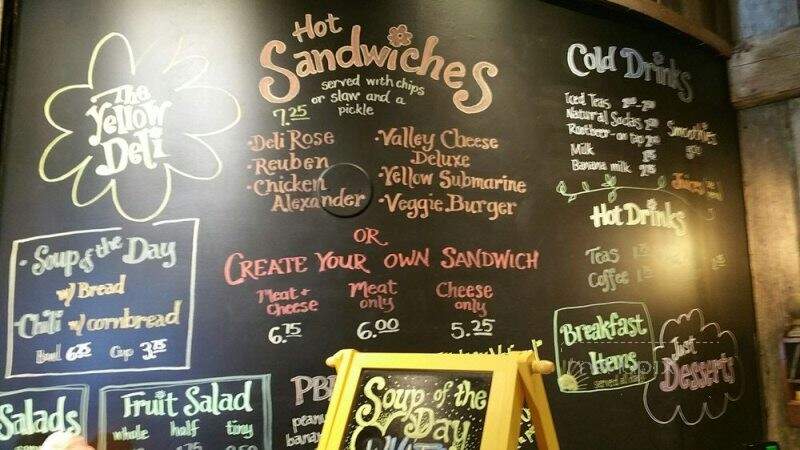 The
Yellow
Deli
Hot
Sandwiches
served with chips
or slaw and a
pickle
7.25
•Deli Rose
•Reuben
•Chicken
Alexander
•Valley Cheese
Deluxe
•Yellow Submarine
•Veggie Burger
OR
CREATE YOUR OWN SANDWICH
Meat + Cheese
6.75
Meat only
6.00
Cheese only
5.25
Cold Drinks
Iced Teas
Natural Sodas
Rootbeer-on tap
Milk
Banana milk
Smoothies
Juices
Hot Drinks
Teas
Coffee
• Soup of the Day
w/ Bread
•Chili w/ cornbread
Bowl 6.25 Cup 3.75
Breakfast
Items
served all day
Just
Desserts
Salads
Fruit Salad
whole half tiny
Soup of the
Day